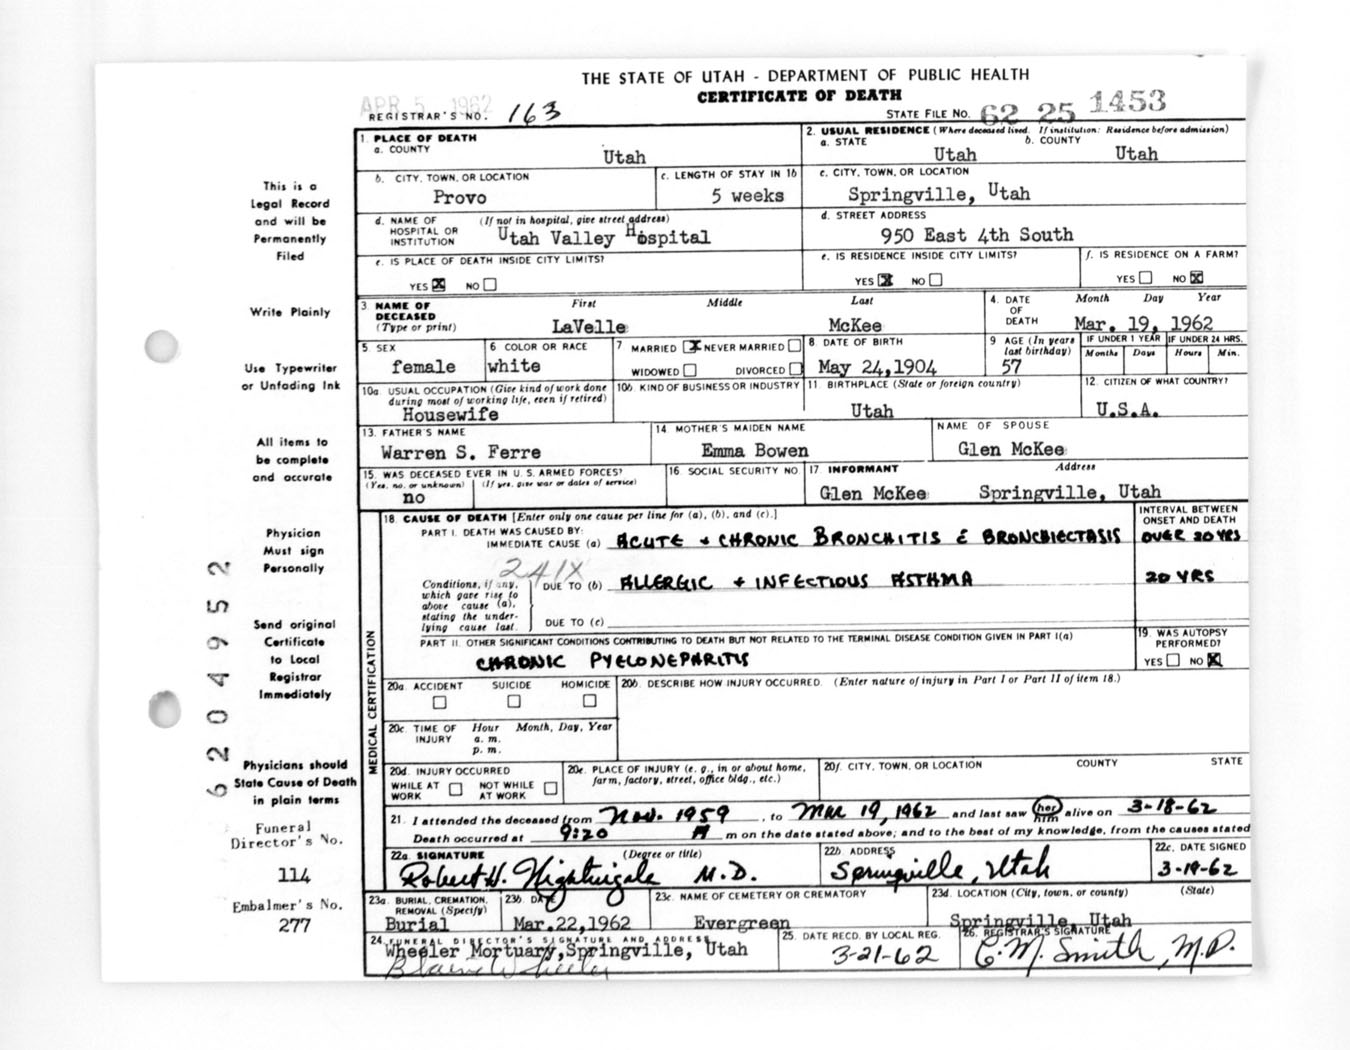 THE STATE OF UTAH - DEPARTMENT OF PUBLIC HEALTH
CERTIFICATE OF DEATH
APR 5 1962
REGISTRAR'S NO. 163
STATE FILE NO. 62 25 1453
1. PLACE OF DEATH
a. COUNTY
Utah
2. USUAL RESIDENCE (Where deceased lived. If institution: Residence before admission)
a. STATE b. COUNTY
Utah Utah
b. CITY, TOWN, OR LOCATION
Provo
c. LENGTH OF STAY IN 1b
5 weeks
c. CITY, TOWN, OR LOCATION
Springville, Utah
d. NAME OF HOSPITAL OR INSTITUTION (If not in hospital, give street address)
Utah Valley Hospital
d. STREET ADDRESS
950 East 4th South
e. IS PLACE OF DEATH INSIDE CITY LIMITS?
YES X NO
e. IS RESIDENCE INSIDE CITY LIMITS?
YES X NO
f. IS RESIDENCE ON A FARM?
YES NO X
3. NAME OF DECEASED (Type or print)
First Middle Last
LaVelle McKee
4. DATE OF DEATH
Month Day Year
Mar. 19, 1962
5. SEX
female
6. COLOR OR RACE
white
7. MARRIED X NEVER MARRIED
WIDOWED DIVORCED
8. DATE OF BIRTH
May 24, 1904
9. AGE (In years last birthday)
57
IF UNDER 1 YEAR IF UNDER 24 HRS.
Months Days Hours Min.
10a. USUAL OCCUPATION (Give kind of work done during most of working life, even if retired)
Housewife
10b. KIND OF BUSINESS OR INDUSTRY
11. BIRTHPLACE (State or foreign country)
Utah
12. CITIZEN OF WHAT COUNTRY?
U.S.A.
13. FATHER'S NAME
Warren S. Ferre
14. MOTHER'S MAIDEN NAME
Emma Bowen
NAME OF SPOUSE
Glen McKee
15. WAS DECEASED EVER IN U. S. ARMED FORCES?
(Yes, no, or unknown) (If yes, give war or dates of service)
no
16. SOCIAL SECURITY NO.
17. INFORMANT Address
Glen McKee Springville, Utah
MEDICAL CERTIFICATION
18. CAUSE OF DEATH [Enter only one cause per line for (a), (b), and (c).]
INTERVAL BETWEEN ONSET AND DEATH
PART I. DEATH WAS CAUSED BY:
IMMEDIATE CAUSE (a) ACUTE + CHRONIC BRONCHITIS c̄ BRONCHIECTASIS OVER 20 YRS
241X
Conditions, if any, which gave rise to above cause (a), stating the underlying cause last.
DUE TO (b) ALLERGIC + INFECTIOUS ASTHMA 20 YRS
DUE TO (c)
PART II. OTHER SIGNIFICANT CONDITIONS CONTRIBUTING TO DEATH BUT NOT RELATED TO THE TERMINAL DISEASE CONDITION GIVEN IN PART I(a)
CHRONIC PYELONEPHRITIS
19. WAS AUTOPSY PERFORMED?
YES NO X
20a. ACCIDENT SUICIDE HOMICIDE
20b. DESCRIBE HOW INJURY OCCURRED. (Enter nature of injury in Part I or Part II of item 18.)
20c. TIME OF INJURY Hour Month, Day, Year
a. m.
p. m.
20d. INJURY OCCURRED
WHILE AT WORK NOT WHILE AT WORK
20e. PLACE OF INJURY (e. g., in or about home, farm, factory, street, office bldg., etc.)
20f. CITY, TOWN, OR LOCATION COUNTY STATE
21. I attended the deceased from Nov. 1959, to Mar 19, 1962 and last saw her him alive on 3-18-62
Death occurred at 9:20 A m on the date stated above; and to the best of my knowledge, from the causes stated
22a. SIGNATURE (Degree or title)
Robert H. Nightingale M.D.
22b. ADDRESS
Springville, Utah
22c. DATE SIGNED
3-19-62
23a. BURIAL, CREMATION, REMOVAL (Specify)
Burial
23b. DATE
Mar. 22, 1962
23c. NAME OF CEMETERY OR CREMATORY
Evergreen
23d. LOCATION (City, town, or county) (State)
Springville, Utah
24. FUNERAL DIRECTOR'S SIGNATURE AND ADDRESS
Wheeler Mortuary, Springville, Utah
Blaine W Wheeler
25. DATE RECD. BY LOCAL REG.
3-21-62
26. REGISTRAR'S SIGNATURE
C. M. Smith, M.D.
This is a
Legal Record
and will be
Permanently
Filed
Write Plainly
Use Typewriter
or Unfading Ink
All items to
be complete
and accurate
Physician
Must sign
Personally
Send original
Certificate
to Local
Registrar
Immediately
Physicians should
State Cause of Death
in plain terms
Funeral
Director's No.
114
Embalmer's No.
277
6204952